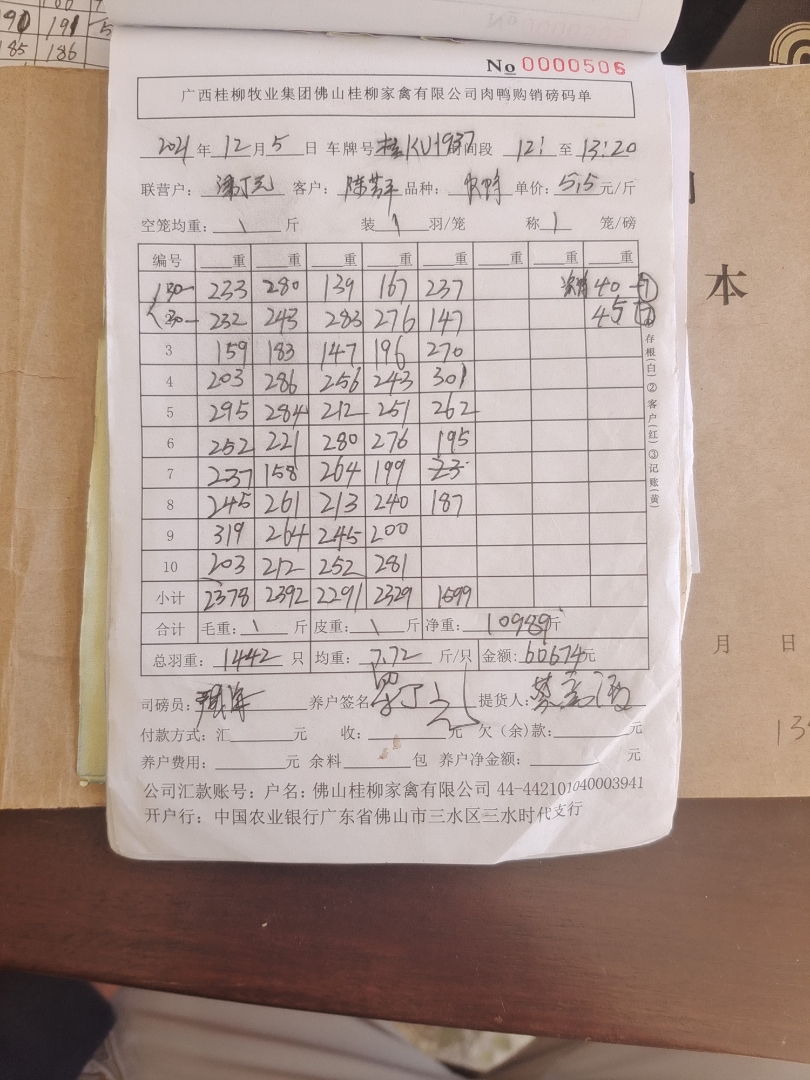 191 5
185 186
No 0000506
广西桂柳牧业集团佛山桂柳家禽有限公司肉鸭购销磅码单
2021年12月5日 车牌号桂KU1937时间段 12: 至 13:20
联营户: 客户: 陈芳平 品种: 单价: 5.5元/斤
空笼均重: \ 斤 装 1 羽/笼 称 1 笼/磅
编号 重 重 重 重 重 重 重 重
233 280 139 167 237 40
232 243 283 276 147 45
3 159 183 147 196 270
4 203 286 256 243 301
5 295 284 212 251 262
6 252 221 280 276 195
7 237 158 264 199 23
8 245 261 213 240 187
9 319 264 245 200
10 203 212 252 281
小计 2378 2392 2291 2329 1599
合计 毛重: \ 斤 皮重: \ 斤 净重: 10989斤
总羽重: 1442 只 均重: 7.72 斤/只 金额: 60674元
司磅员: 养户签名 提货人:
付款方式: 汇 元 收: 元 欠(余)款: 元
养户费用: 元 余料 包 养户净金额: 元
公司汇款账号: 户名: 佛山桂柳家禽有限公司 44-442101040003941
开户行: 中国农业银行广东省佛山市三水区三水时代支行
存根(白)②客户(红)③记账(黄)
本
月 日